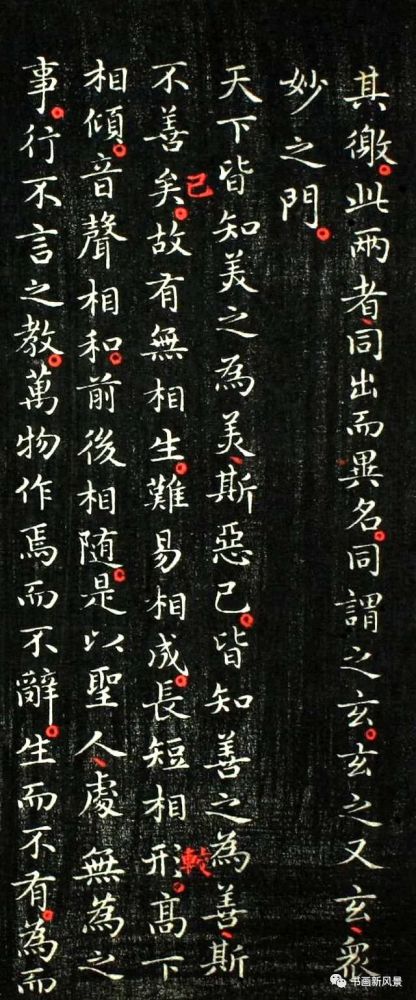 其徼。此兩者、同出而異名。同謂之玄。玄之又玄、衆
妙之門。
天下皆知美之為美、斯惡已。皆知善之為善、斯
已
不善矣。故有無相生。難易相成。長短相形。高下
較
相傾。音聲相和。前後相隨。是以聖人、處無為之
事。行不言之教。萬物作焉而不辭。生而不有。為而
书画新风景